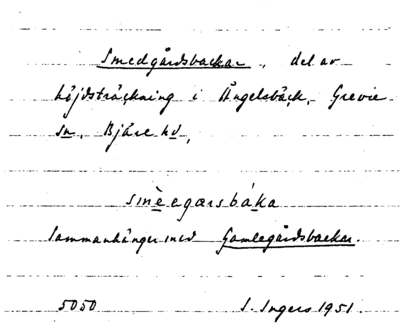 Smedgårdsbackar, del av
höjdsträckning i Ängelsbäck, Grevie
sn, Bjäre hd,
smèegarsbáka
Sammanhänger med Gamlegårdsbackar.
5050 I. Ingers 1951.